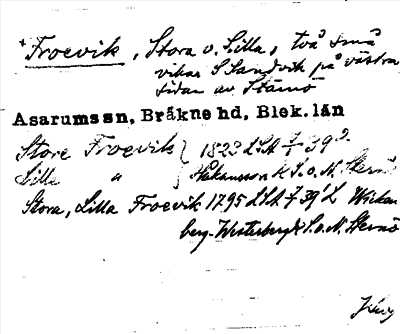 *Froevik, Stora o. Lilla, två små
vikar S Sandvik på västra
sidan av Stärnö
Asarums sn, Bräkne hd, Blek. län
Store Froevik } 1823 LSA
Lilla " } Håkansson k S. o. N. Sternö
Stora, Lilla Froevik 1795 LSA Wicken
berg-Westerberg k S. o. N. Sternö